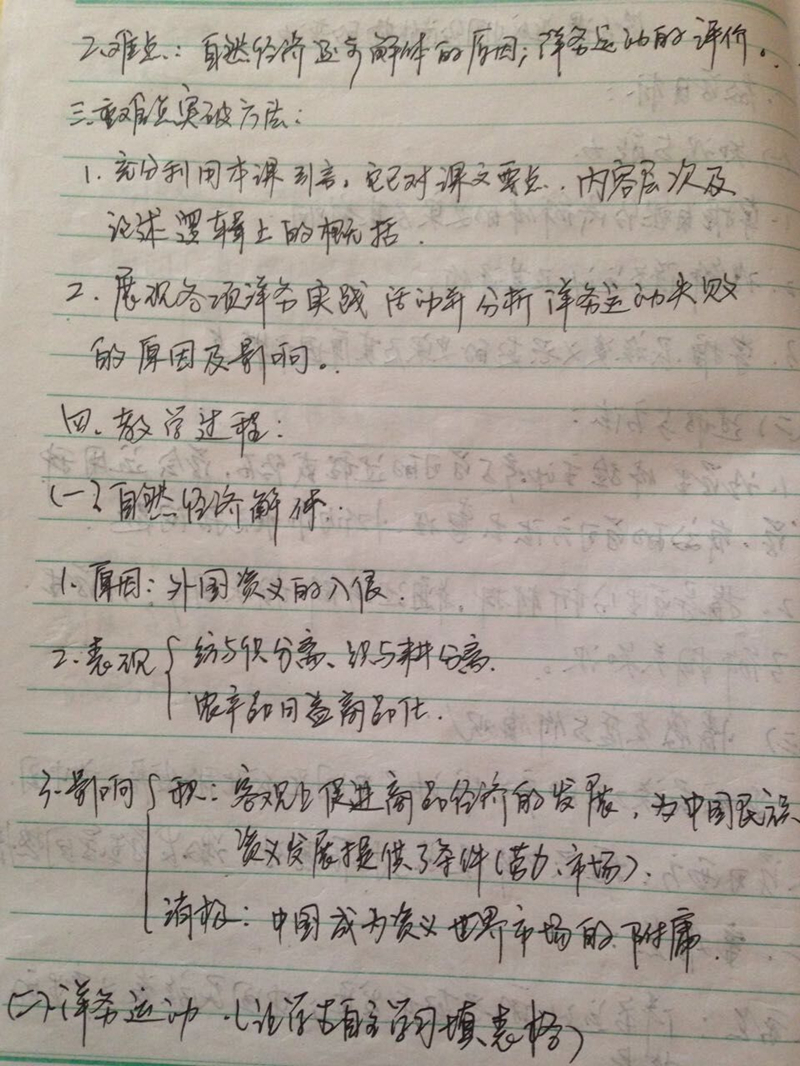 2.难点：自然经济逐步解体的原因；洋务运动的评价。
三.重难点突破方法：
1.充分利用本课引言，它已对课文要点、内容层次及
论述逻辑上的概括.
2.展现各项洋务实践活动并分析洋务运动失败
的原因及影响。
四、教学过程：
(一)自然经济解体.
1.原因：外国资义的入侵.
2.表现{纺与织分离、织与耕分离.
农产品日益商品化.
3.影响{积：客观上促进商品经济的发展，为中国民族
资义发展提供了条件(劳力、市场).
消极：中国成为资义世界市场的附庸.
(二)洋务运动.(让学生自主学习填表格)